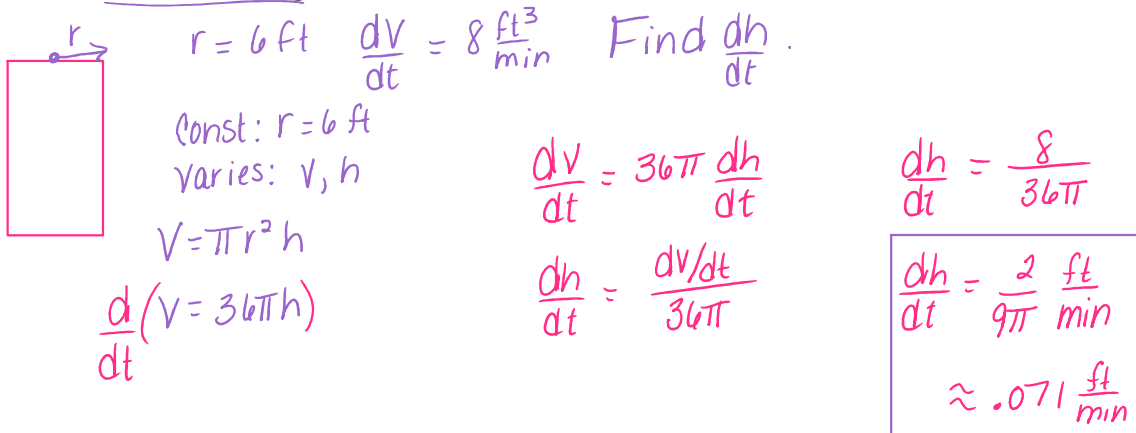 r
r = 6 ft dV/dt = 8 ft³/min Find dh/dt.
Const: r = 6 ft
varies: V, h
V = πr²h
d/dt (V = 36πh)
dv/dt = 36π dh/dt
dh/dt = dv/dt / 36π
dh/dt = 8/36π
dh/dt = 2/9π ft/min
≈ .071 ft/min